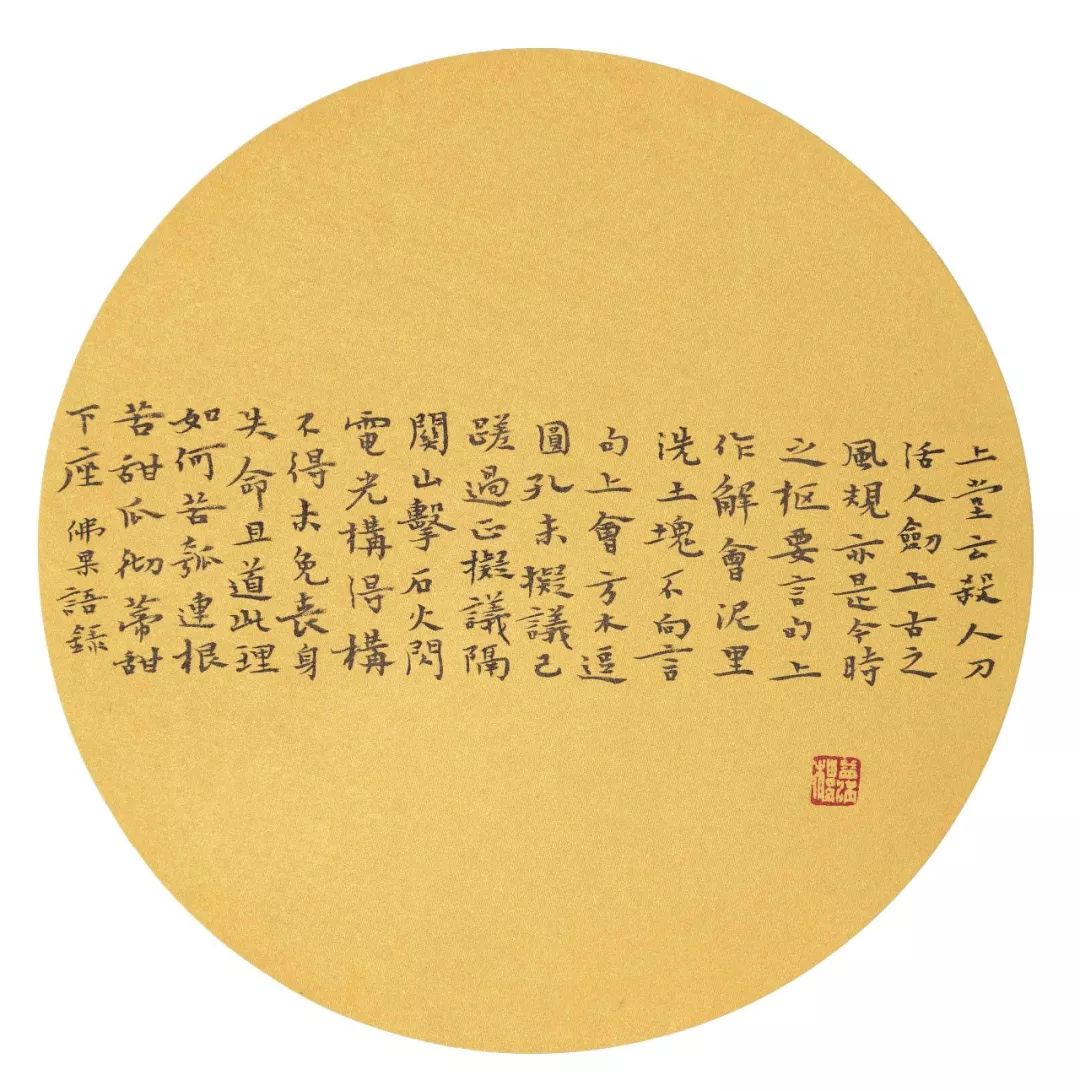 上堂云殺人刀
活人劍上古之
風規亦是今時
之枢要言句上
作解會泥里
洗土塊不向言
句上會方木逗
圓孔未擬議已
蹉過正擬議隔
關山擊石火閃
電光構得構
不得未免喪身
失命且道此理
如何苦瓠連根
苦甜瓜彻蒂甜
下座 佛果語錄